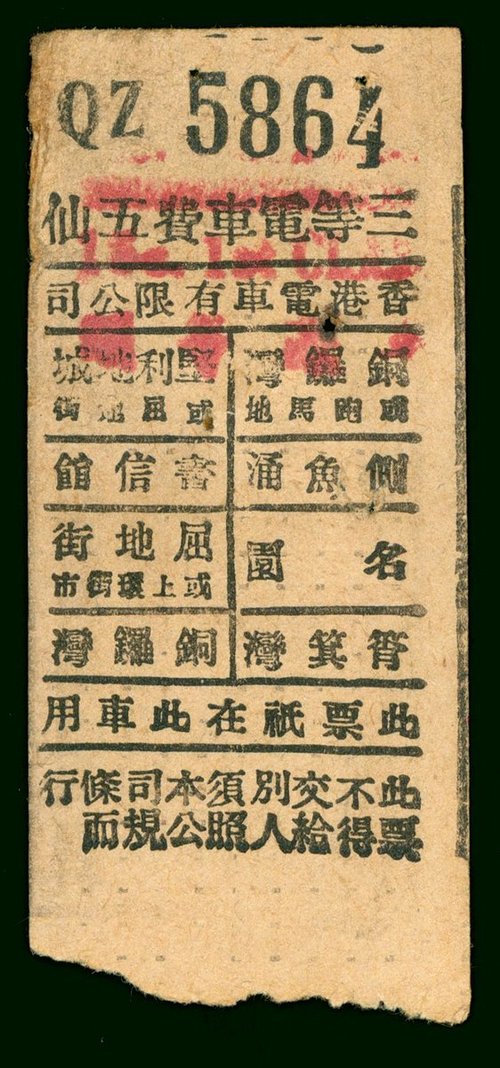 QZ 5864
三等電車費五仙
香港電車有限公司
銅鑼灣 堅利地城
或跑馬地 或屈地街
側魚涌 書信館
名園 屈地街
或上環街市
筲箕灣 銅鑼灣
此票祇在此車用
此票不得交給別人須照本公司規條而行